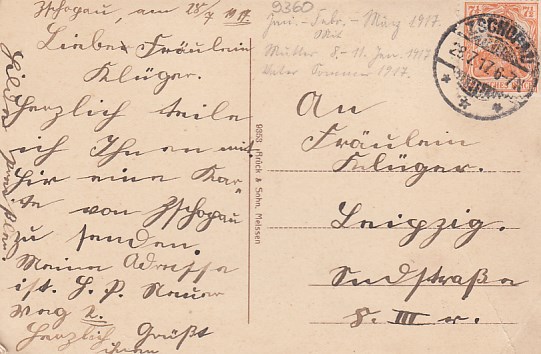 Zschopau, am 28/7 1917.
Liebes Fräulein
Klüger.
Herzlich teile
ich Ihnen mit
hir eine Kar
te von Zschopau
zu senden.
Meine Adresse
ist. H. P. Neuer
weg 2.
Herzlich Grüßt
9360
Jan. - Febr. - März 1917.
Mit
Mutter 8.-11. Jan. 1917
Vater Sommer 1917.
7½
ZSCHOPAU
28.7.17.6-7
9353 Brück & Sohn, Meissen
An
Fräulein
Klüger.
Leipzig.
Südstraße
8. III r.